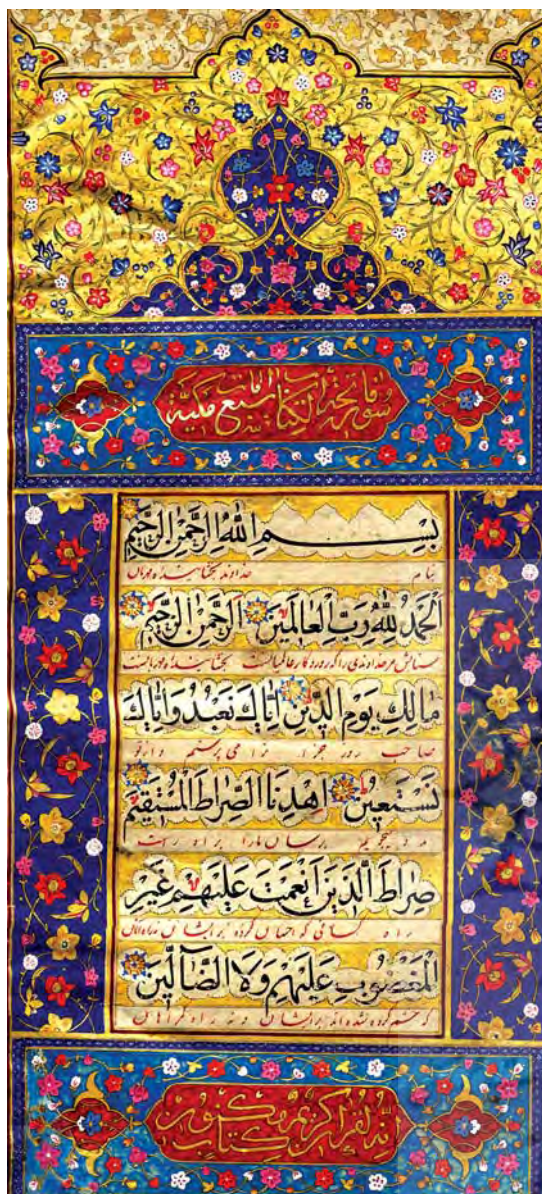 سورة فاتحة الكتاب سبع ايات مكية
بِسْمِ اللهِ الرَّحْمٰنِ الرَّحِيمِ
بنام خداوند بخشاینده مهربان
اَلْحَمْدُ لِلّٰهِ رَبِّ الْعَالَمِينَ اَلرَّحْمٰنِ الرَّحِيمِ
ستایش مر خداوندی را که پروردگار عالمیانست بخشاینده مهربانست
مَالِكِ يَوْمِ الدِّينِ اِيَّاكَ نَعْبُدُ وَاِيَّاكَ
صاحب روز جزا ترا می پرستیم و از تو
نَسْتَعِينُ اِهْدِنَا الصِّرَاطَ الْمُسْتَقِيمَ
مدد میجوییم برسان مارا براه راست
صِرَاطَ الَّذِينَ اَنْعَمْتَ عَلَيْهِمْ غَيْرِ
راه کسانی که احسان کرده برایشان نه راه آنان
الْمَغْضُوبِ عَلَيْهِمْ وَلَا الضَّآلِّينَ
که خشم کرده شده اند برایشان و نه راه گمراهان
انه لقران كريم في كتاب مكنون